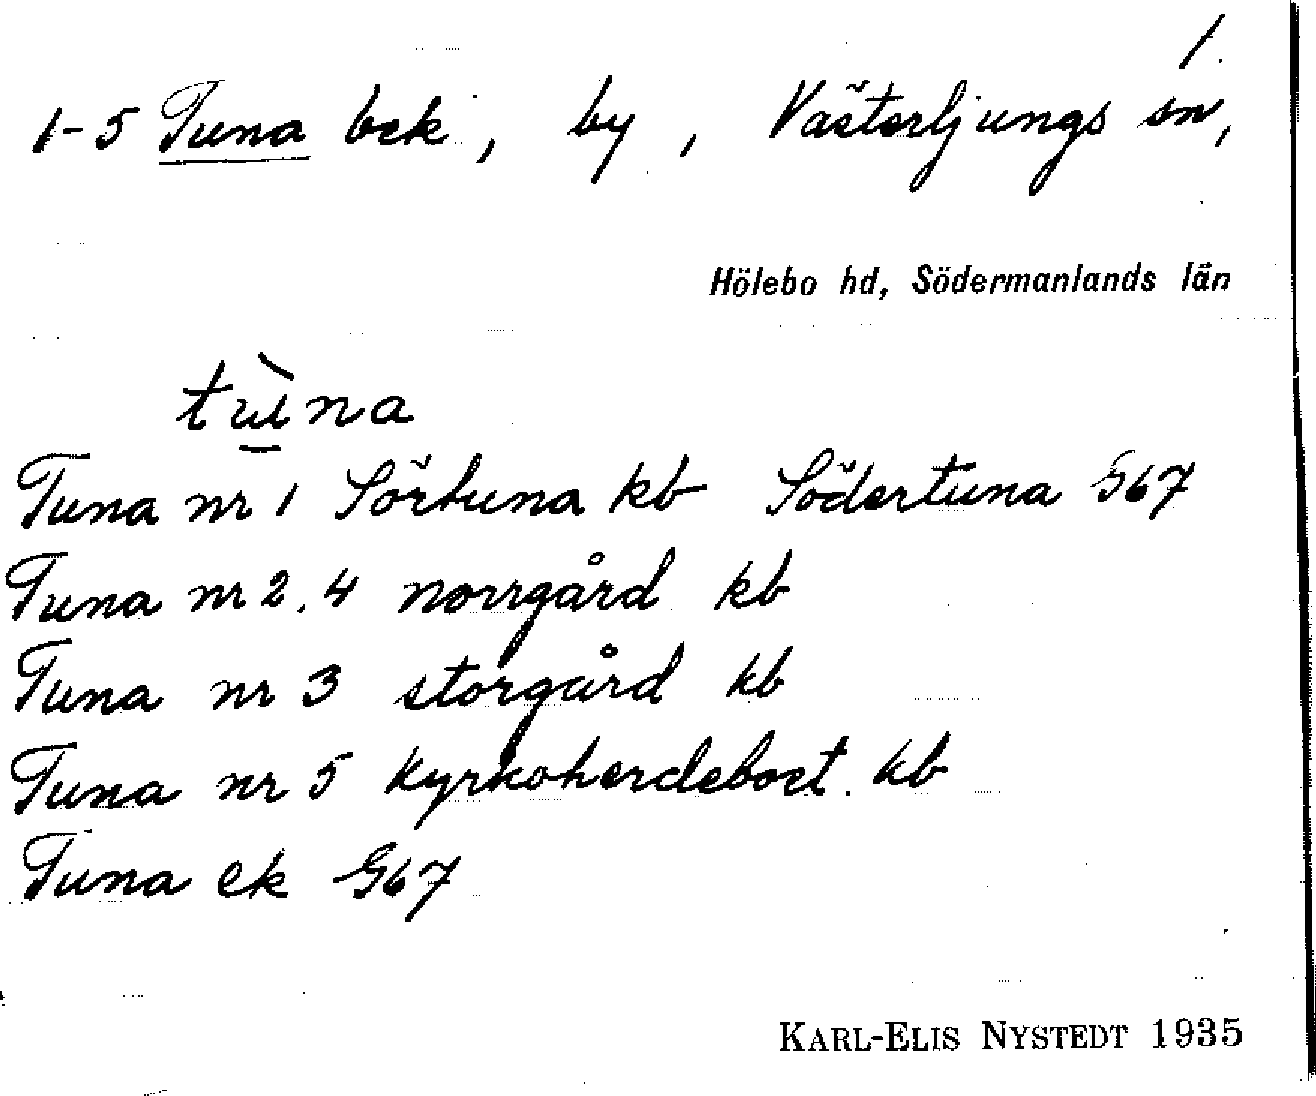 1.
1-5 Tuna bek, by, Västerljungs sn,
Hölebo hd, Södermanlands län
tùna
Tuna nr 1 Sörtuna kb Södertuna G67
Tuna nr 2, 4 norrgård kb
Tuna nr 3 storgård kb
Tuna nr 5 kyrkoherdebost. kb
Tuna ek G67
KARL-ELIS NYSTEDT 1935